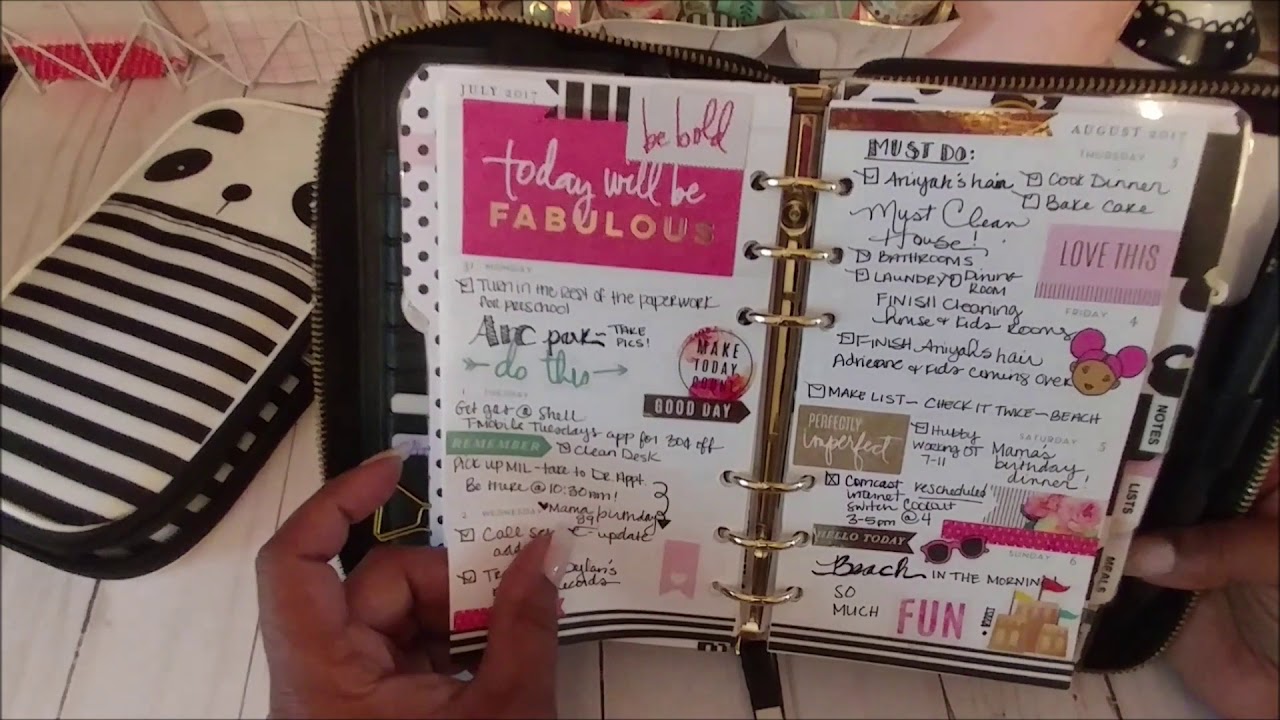 JULY 2017
be bold
today will be
FABULOUS
31 MONDAY
Turn in the rest of the paperwork
for preschool
park - TAKE
PICS!
do this
MAKE
TODAY
COUNT
GOOD DAY
1 TUESDAY
Get gas @ Shell
T-Mobile Tuesdays app for 30¢ off
REMEMBER
Clean Desk
Pick up MIL - take to Dr. Appt.
Be there @ 10:30am!
2 WEDNESDAY
♥ Mama birthday
89
Call
update
Dylan's
records
AUGUST 2017
THURSDAY 3
MUST DO:
Aniyah's hair
Cook Dinner
Bake Cake
Must Clean
House!
BATHROOMS
LAUNDRY
Dining
ROOM
FINISH Cleaning
house & kids rooms
LOVE THIS
FRIDAY 4
FINISH Aniyah's hair
Adrieane & kids coming over
MAKE LIST - CHECK IT TWICE - BEACH
PERFECTLY
imperfect
Hubby
working OT
7-11
SATURDAY 5
Mama's
birthday
dinner!
Comcast
internet
switch
3-5pm
rescheduled
Cookout
@ 4
HELLO TODAY
SUNDAY 6
Beach IN THE MORNING
SO
MUCH
FUN
NOTES
LISTS
MEALS